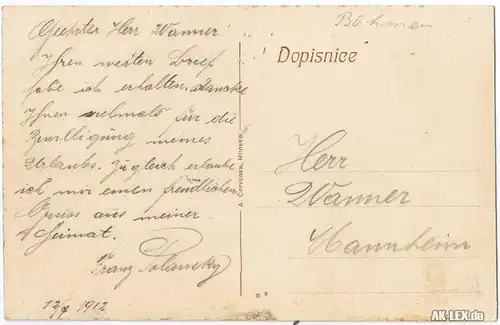 Geehrter Herr Wanner.
Ihren werten Brief
habe ich erhalten. Dancke
Ihnen vielmals für die
Bewilligung meines
Urlaubs. Zugleich erlaube
ich mir einen freundlichen
Gruss aus meiner
Heimat.
Franz Polansky
1912
A. Červenka, Hlinsko
Böhmen
Dopisnice
Herr
Wanner
Mannheim
AK-LEX.de